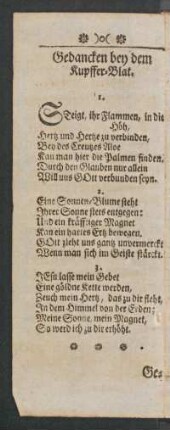 )o(
Gedancken bey dem
Kupffer-Blat.
1.
Steigt, ihr Flammen, in die
Höh,
Hertz und Hertze zu verbinden,
Bey des Creutzes Aloe
Kan man hier die Palmen finden.
Durch den Glauben nur allein
Will uns GOtt verbunden seyn.
2.
Eine Sonnen-Blume steht
Ihrer Sonne stets entgegen:
Und ein kräfftiger Magnet
Kan ein hartes Ertz bewegen.
GOtt zieht uns gantz unvermerckt
Wenn man sich im Geiste stärckt.
3.
JEsu lasse mein Gebet
Eine göldne Kette werden,
Zeuch mein Hertz, das zu dir steht,
In dem Himmel von der Erden:
Meine Sonne, mein Magnet,
So werd ich zu dir erhöht.
Ge-